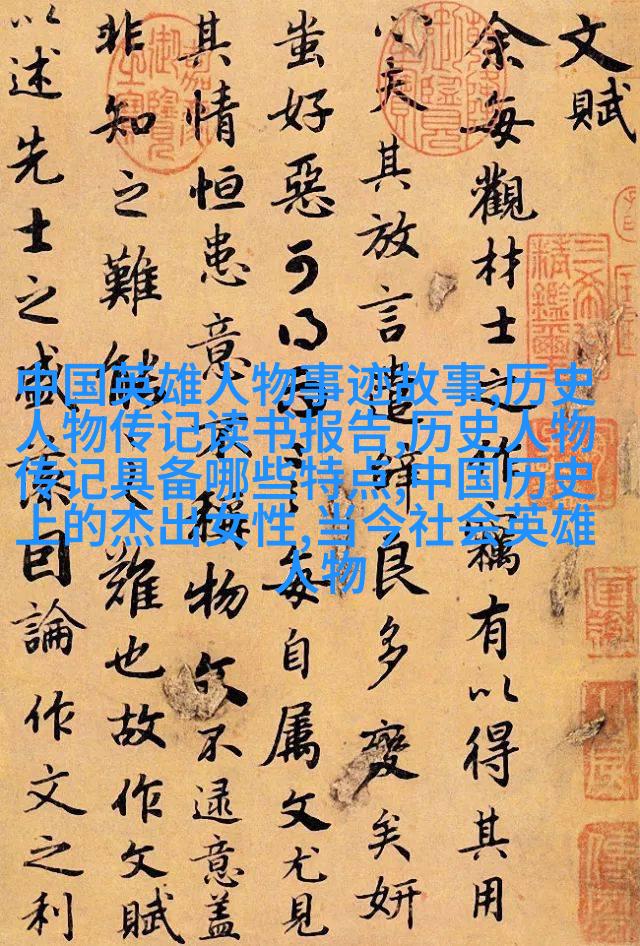 文賦
余每觀材士之作竊有以得其用
心夫其放言遣辭良多變矣妍
蚩好惡可得而言每自属文尤見
其情恒患意不稱物文不逮意蓋
非知之難能之難也故作文賦
以述先士之盛藻因論作文之利
中国英雄人物事迹故事,历史
人物传记读书报告,历史人物
传记具备哪些特点,中国历史
上的杰出女性,当今社会英雄
人物